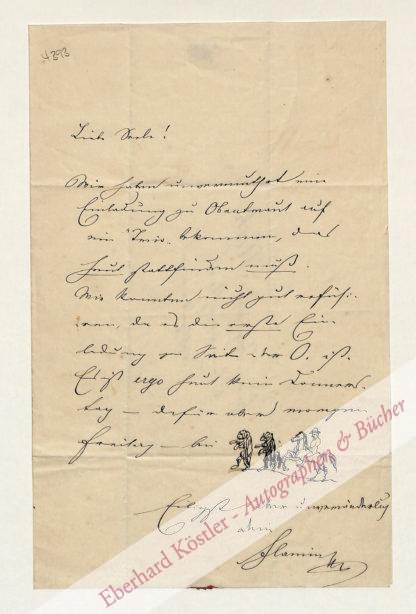 4393
Liebe Seele!
Wir haben unvermuthet eine
Einladung zu Obentraut auf
ein Trio bekommen, das
heut stattfinden muß.
Wir konnten nicht gut refüsi-
ren, da es die erste Ein-
ladung von Seite der O. ist.
Es ist ergo heut kein Donners-
tag – dafür aber morgen
Freitag – bei
Eiligst aber unveränderlich
Eberhard Köstler - Autographen & Bücher